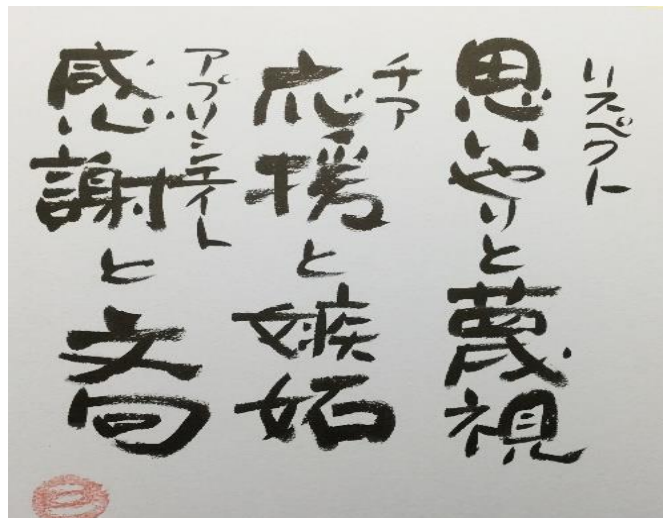 リスペクト
思いやりと蔑視
チア
応援と嫉妬
アプリシエイト
感謝と